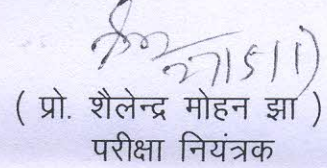 27/5/11
( प्रो. शैलेन्द्र मोहन झा )
परीक्षा नियंत्रक